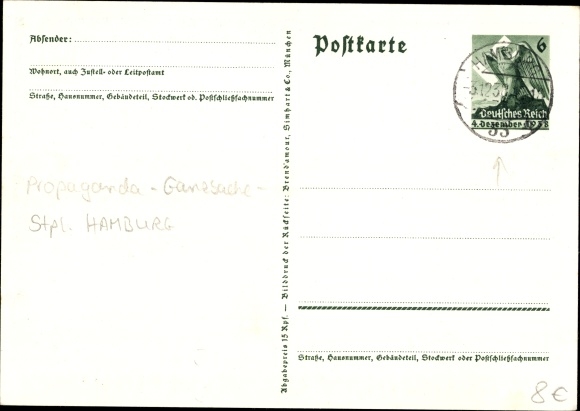 Absender:
Wohnort, auch Zustell- oder Leitpostamt
Straße, Hausnummer, Gebäudeteil, Stockwerk od. Postschließfachnummer
Propaganda - Ganzsache -
Stpl. HAMBURG
Abgabepreis 15 Rpf. — Bilddruck der Rückseite: Brend'amour, Simhart & Co., München
Postkarte
6
Deutsches Reich
4. Dezember 1938
33
Straße, Hausnummer, Gebäudeteil, Stockwerk oder Postschließfachnummer
8€